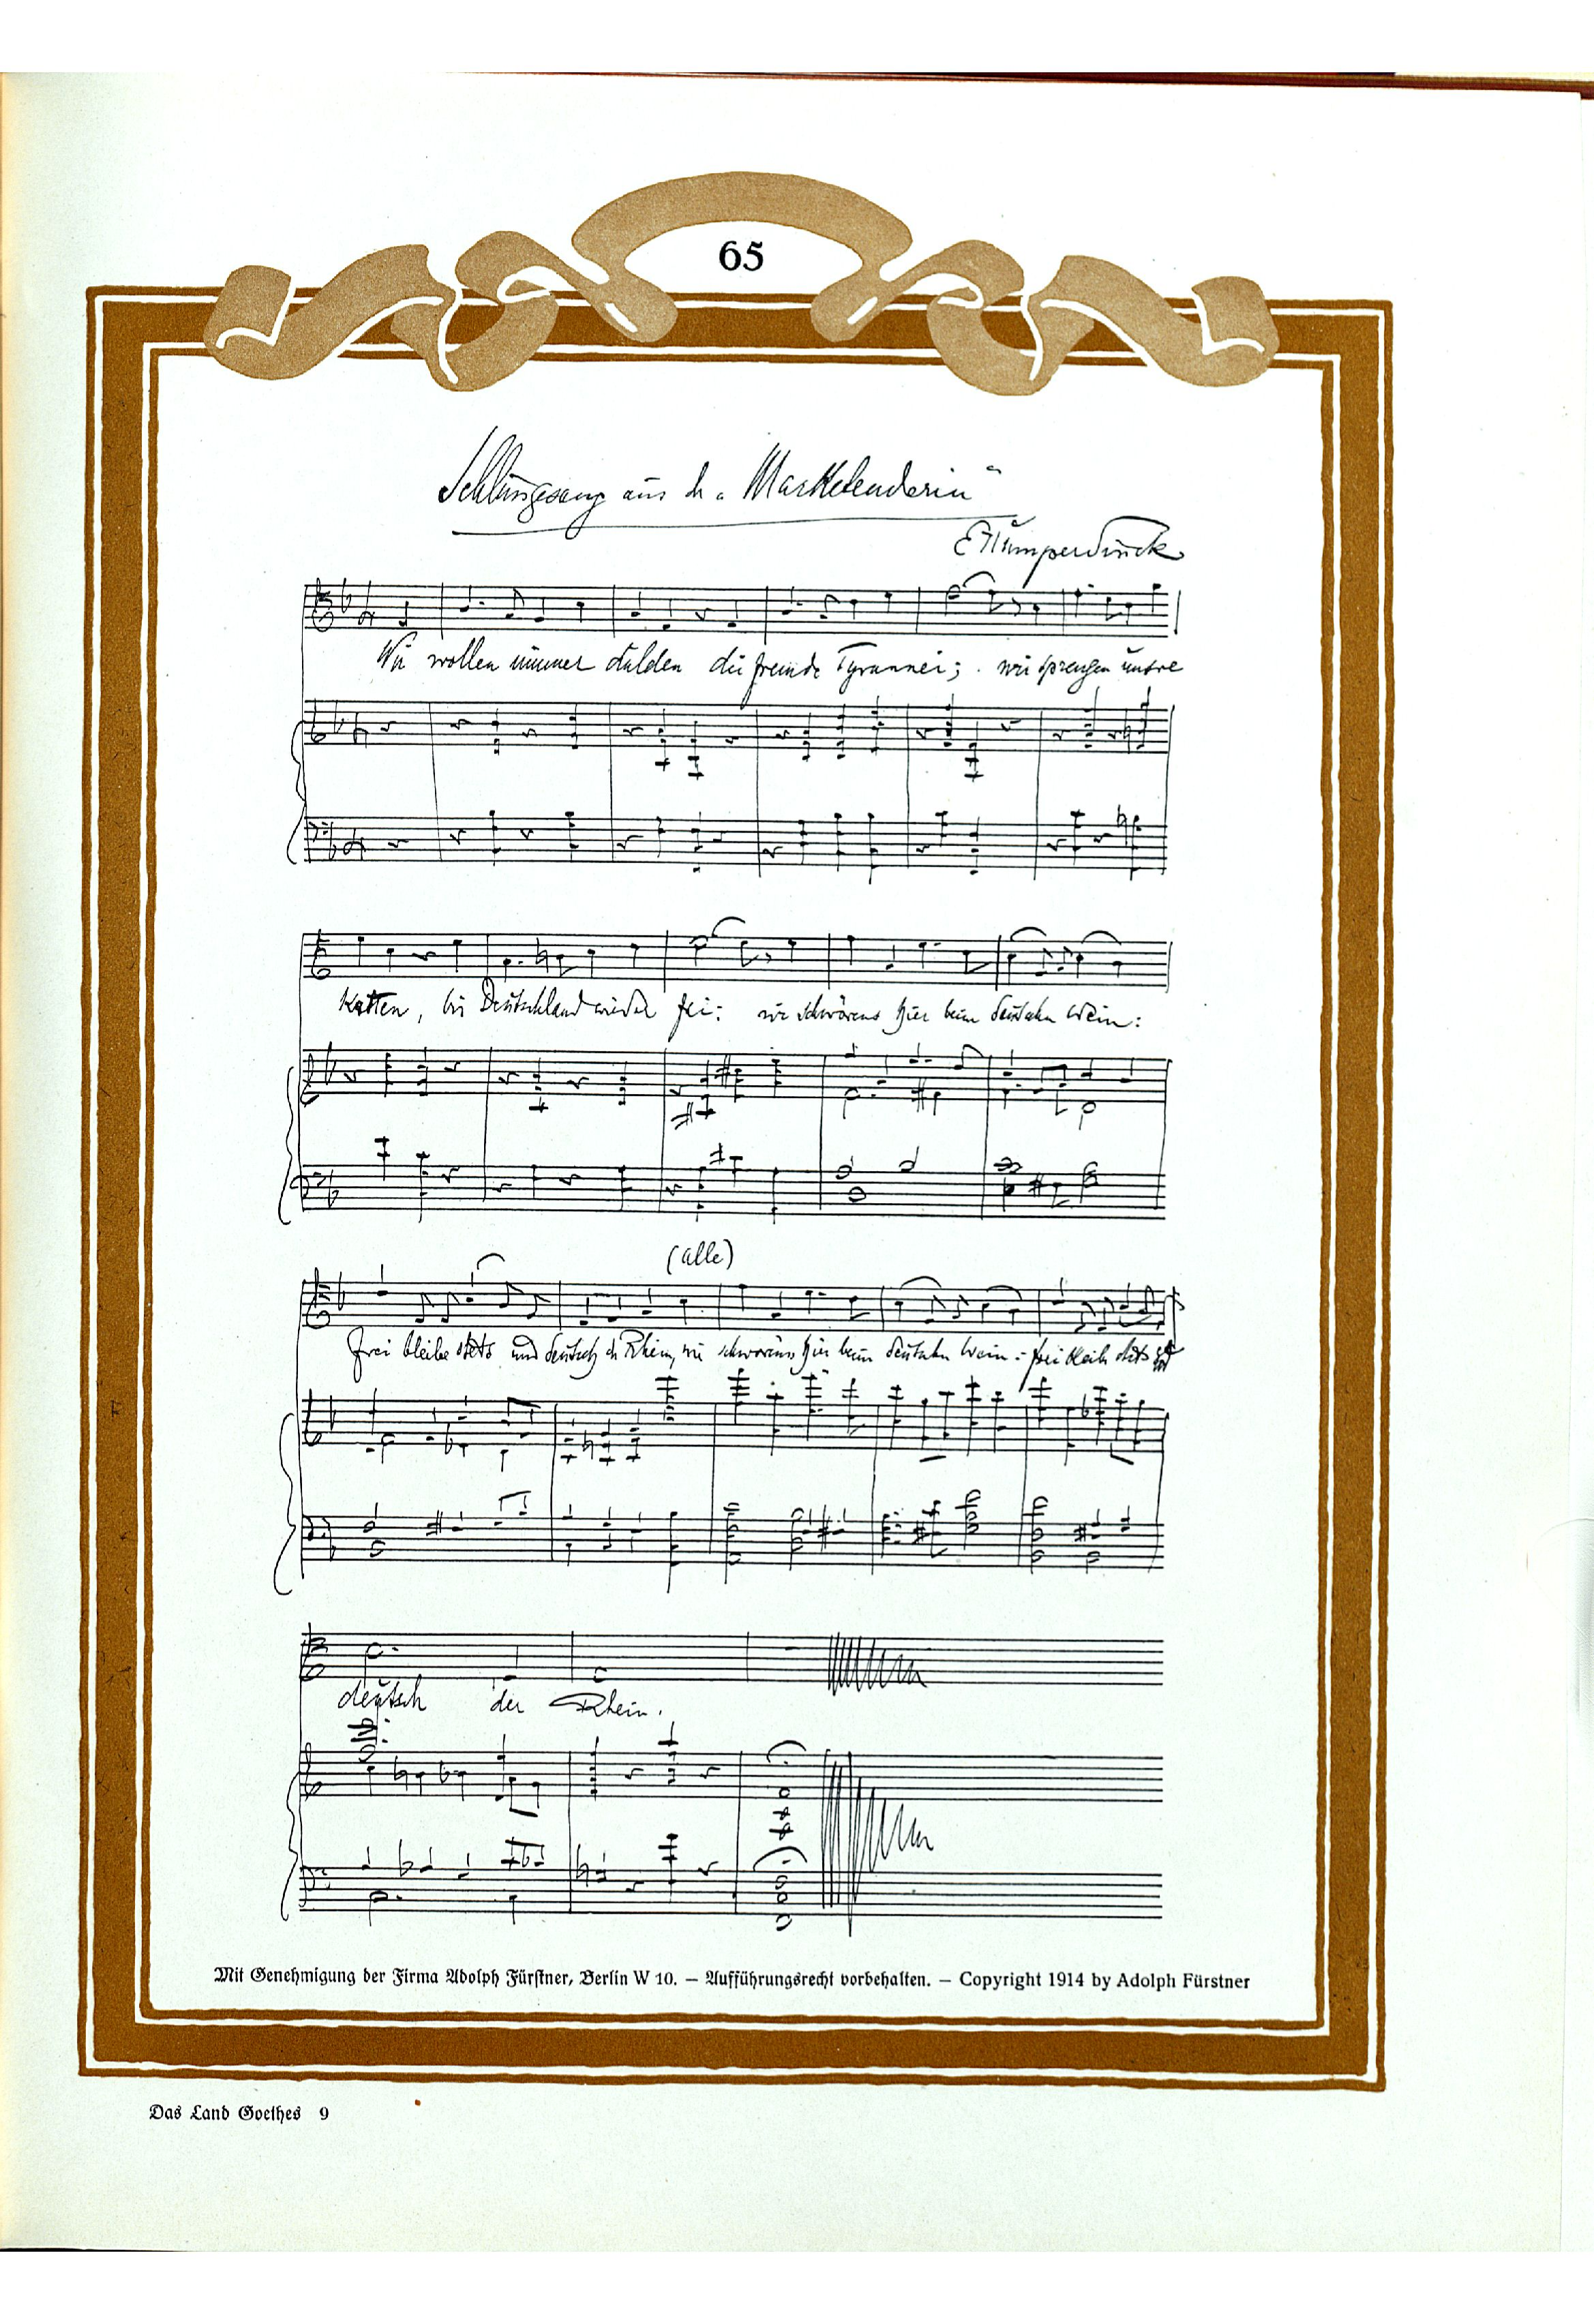 65
Schlußgesang aus der „Marketenderin"
E Humperdinck
Wir wollen nimmer dulden die fremde Tyrannei; wir sprengen unsre
Ketten, bis Deutschland wieder frei: wir schwörens hier beim deutschen Wein:
(alle)
frei bleibe stets und deutsch der Rhein, wir schwörens hier beim deutschen Wein: frei bleibe stets und
deutsch der Rhein.
Mit Genehmigung der Firma Adolph Fürstner, Berlin W 10. — Aufführungsrecht vorbehalten. — Copyright 1914 by Adolph Fürstner
Das Land Goethes 9